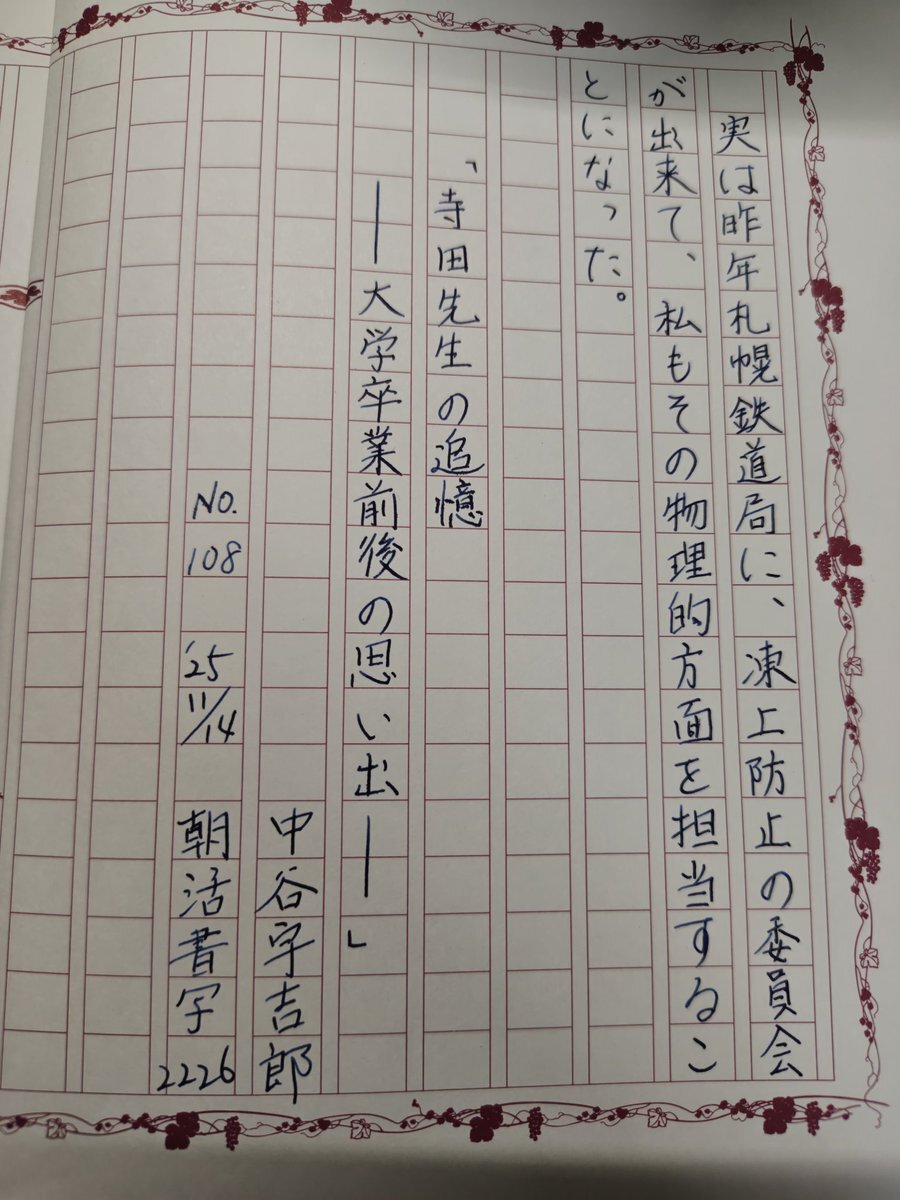 実は昨年札幌鉄道局に、凍上防止の委員会
が出来て、私もその物理的方面を担当するこ
とになった。
「寺田先生の追憶
―大学卒業前後の思い出―」
中谷宇吉郎
No. 108 '25 11/14 朝活書写 2226